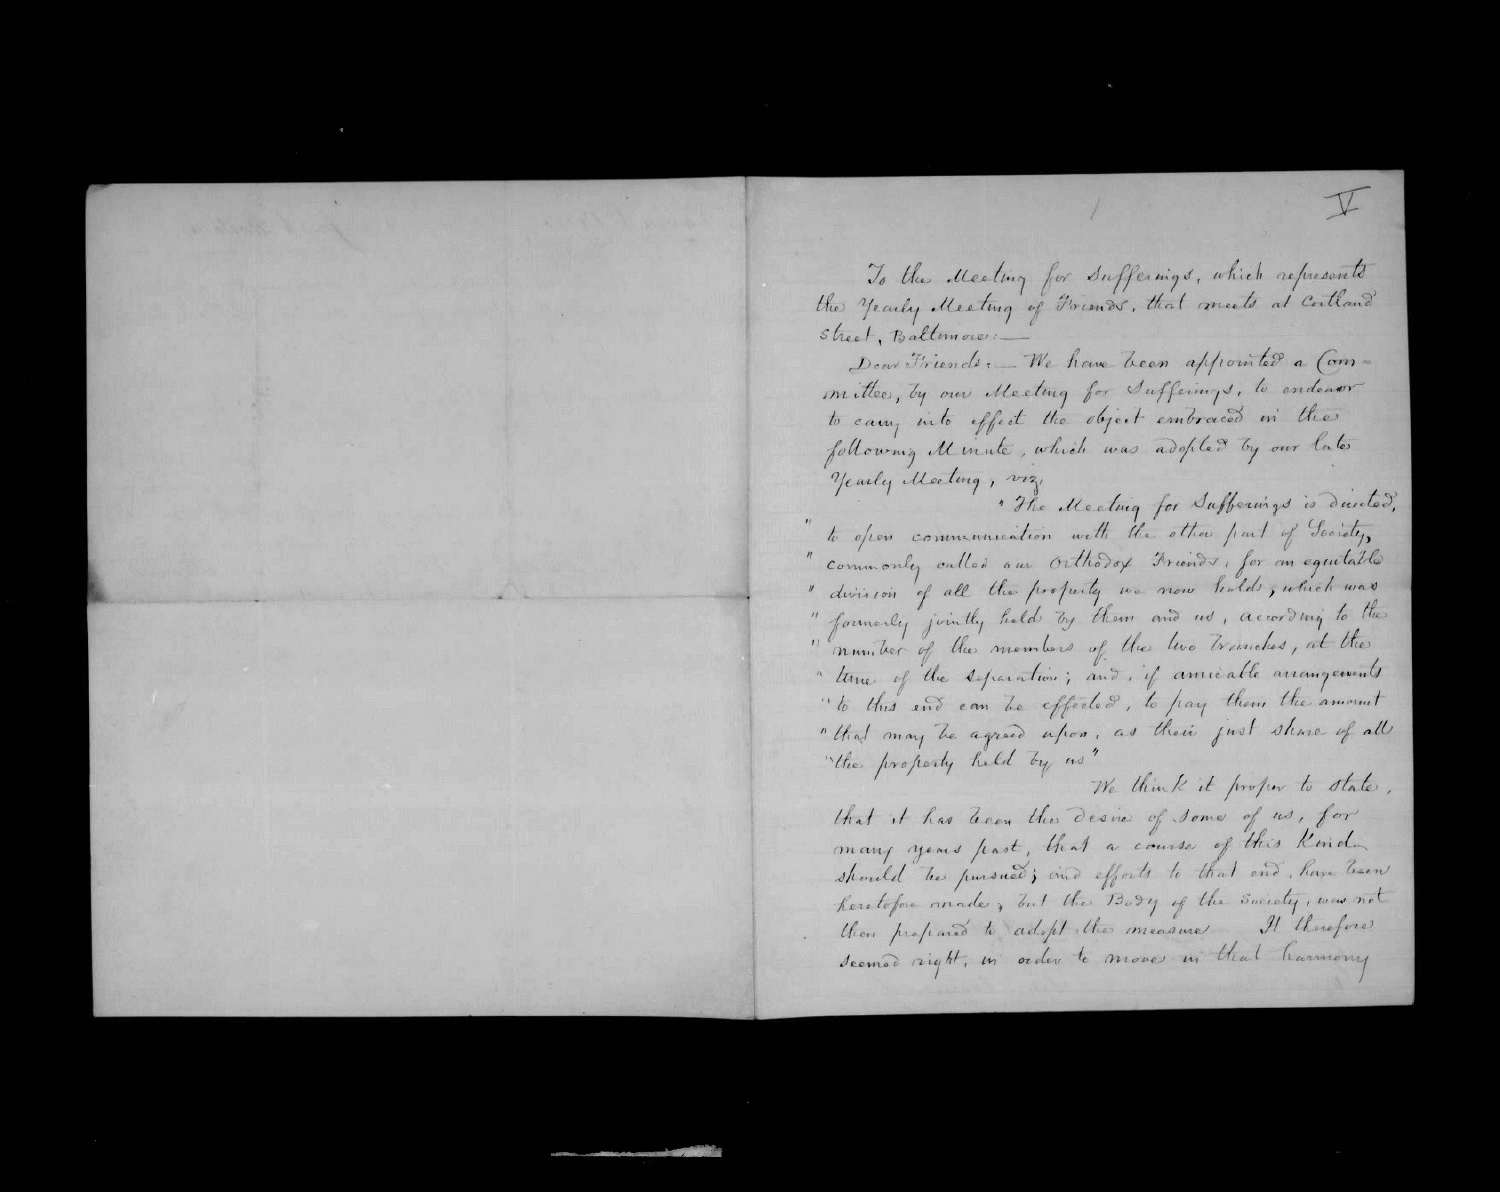 V
To the Meeting for Sufferings, which represents
the Yearly Meeting of Friends, that meets at Cortland
Street, Baltimore:—
Dear Friends:— We have been appointed a Com-
mittee, by our Meeting for Sufferings, to endeavor
to carry into effect the object embraced in the
following Minute, which was adopted by our late
Yearly Meeting, viz.
"The Meeting for Sufferings is directed,
" to open communication with the other part of Society,
" commonly called our Orthodox Friends, for an equitable
" division of all the property we now hold, which was
" formerly jointly held by them and us, according to the
" number of the members of the two branches, at the
" time of the separation; and, if amicable arrangements
" to this end can be effected, to pay them the amount
" that may be agreed upon, as their just share of all
" the property held by us"
We think it proper to state,
that it has been the desire of some of us, for
many years past, that a course of this Kind
should be pursued; and efforts to that end, have been
heretofore made, but the Body of the Society, was not
then prepared to adopt the measure It therefore
seemed right, in order to move in that harmony